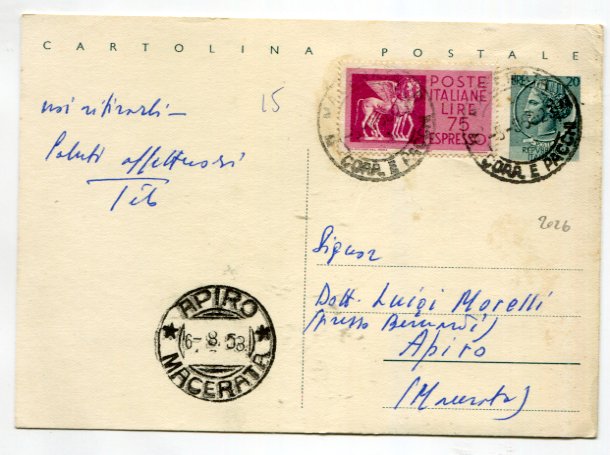 CARTOLINA POSTALE
noi ritirarli –
Saluti affettuosi
Tito
15
POSTE
ITALIANE
LIRE
75
ESPRESSO
20
CORR. E PACCHI
2026
Signor
Dott. Luigi Morelli
(presso Bernardi)
Apiro
(Macerata)
APIRO
6-8.58
MACERATA